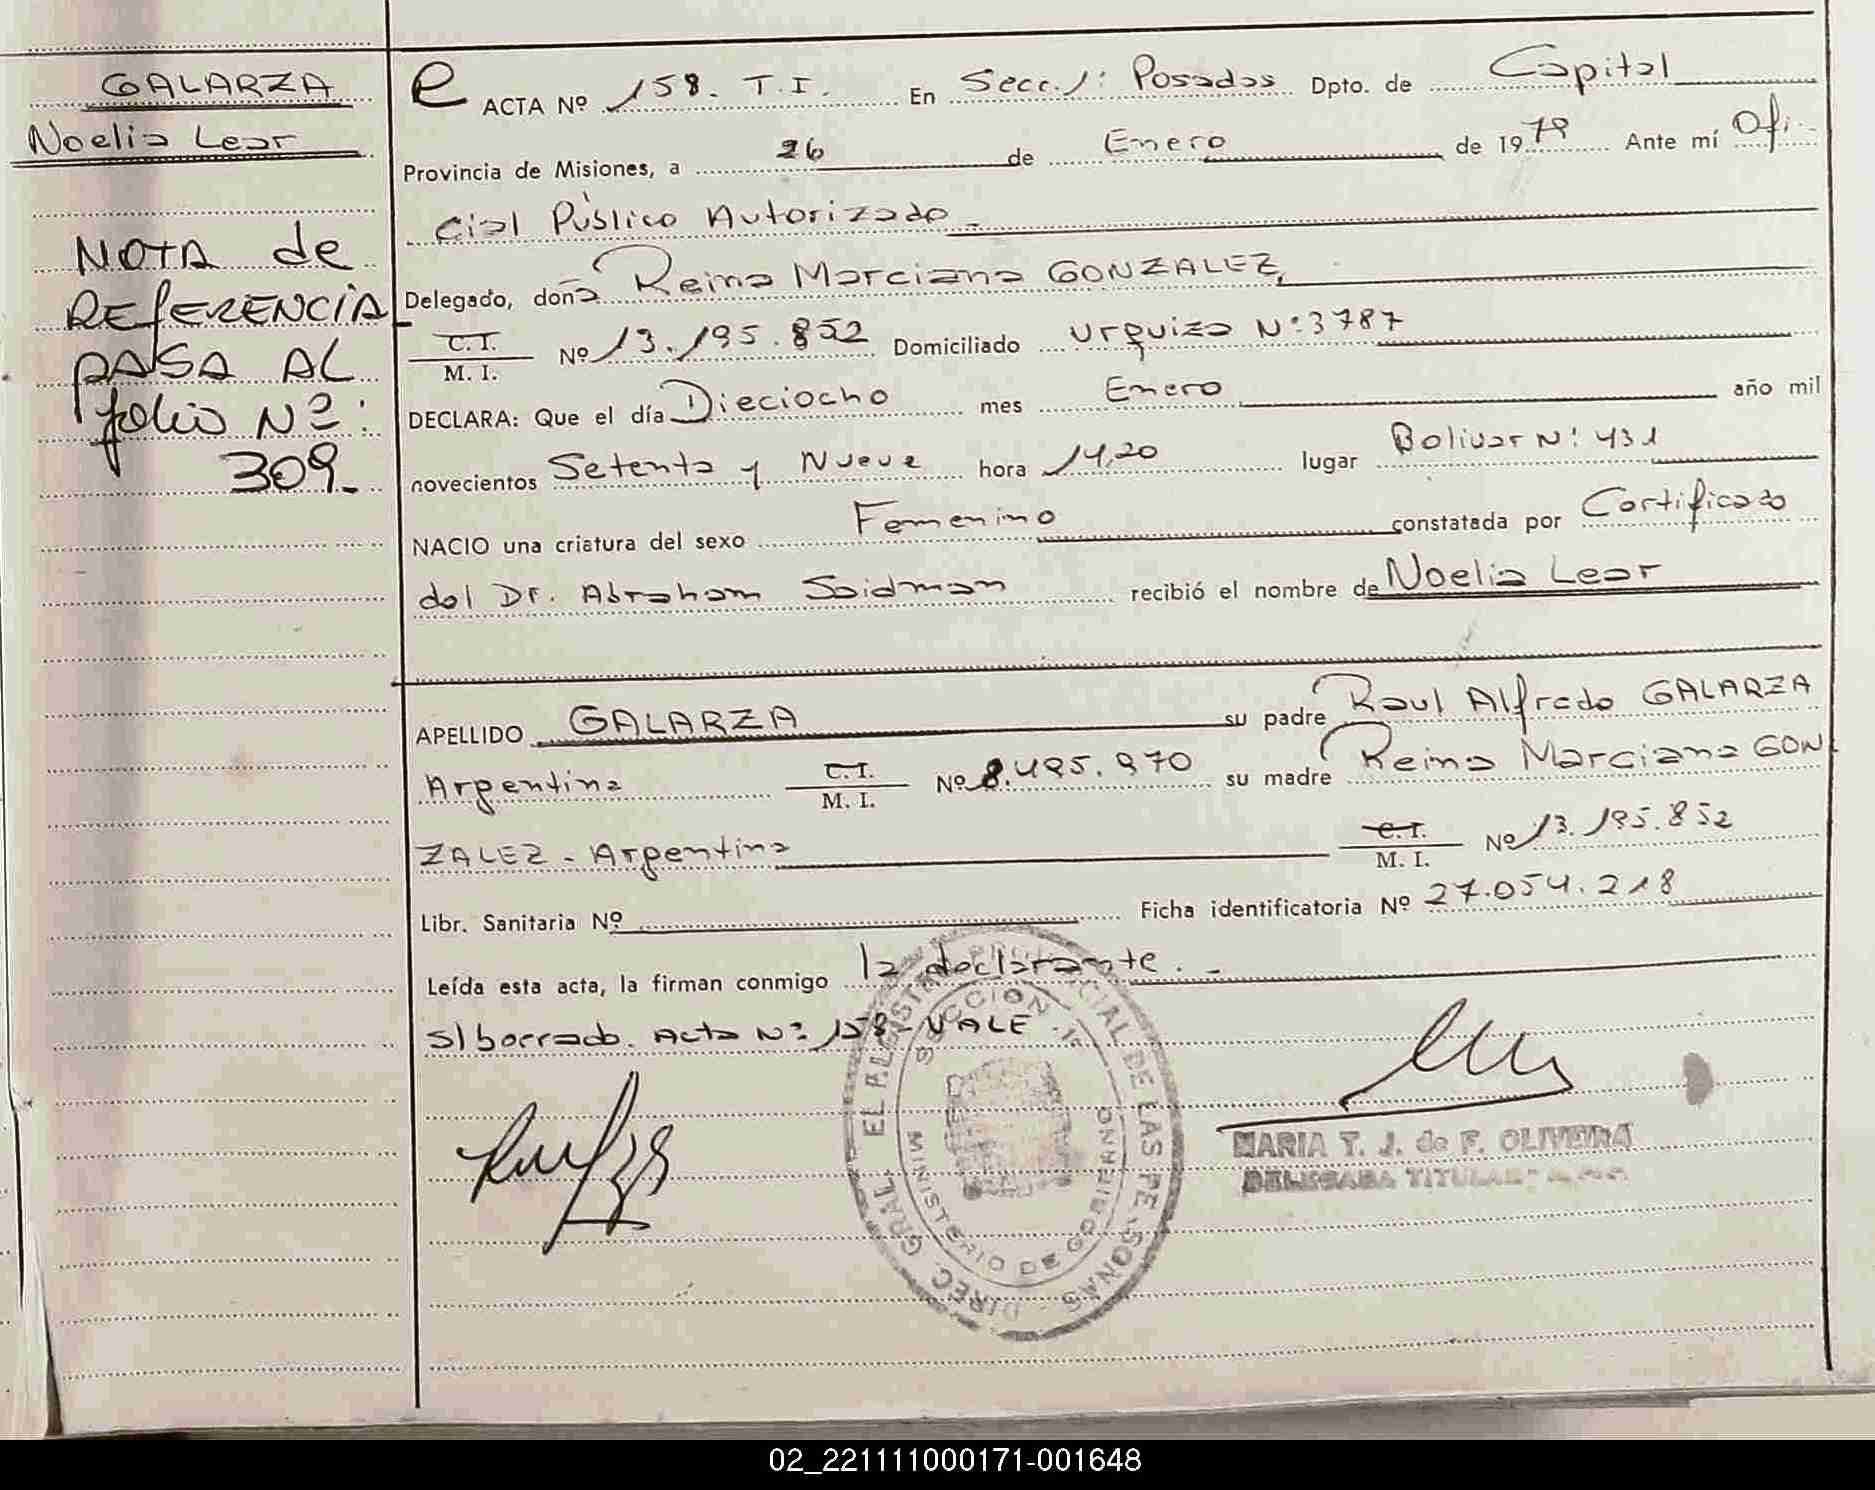 GALARZA
Noelia Lear
NOTA de
REfERENCiA
PASA AL
folio Nº:
309_
e ACTA Nº 158. T.I. En Secc.1: Posadas Dpto. de Capital
Provincia de Misiones, a 26 de Enero de 1979 Ante mí Ofi-
cial Público Autorizado -
Delegado, doña Reina Marciana GONZALEZ,
C.I.
M. I. Nº 13.195.852 Domiciliado Urquiza Nº:3787
DECLARA: Que el día Dieciocho mes Enero año mil
novecientos Setenta y Nueve hora 14,20 lugar Bolivar Nº: 431
NACIO una criatura del sexo Femenino constatada por Certificado
del Dr. Abraham Saidman recibió el nombre de Noelia Lear
APELLIDO GALARZA su padre Raul Alfredo GALARZA
Argentina C.I.
M. I. Nº 8.495.970 su madre Reina Marciana GON
ZALEZ - Argentina C.I.
M. I. Nº 13.195.852
Libr. Sanitaria Nº Ficha identificatoria Nº 27.054.218
Leída esta acta, la firman conmigo la declarante. -
S/borrado. Acta Nº: 158 - VALE
DIREC. GRAL. DE LAS PERSONAS
SECCION 1ª
MINISTERIO DE GOBIERNO
MARIA T. J. de F. OLIVEIRA
DELEGADA TITULAR
02_221111000171-001648